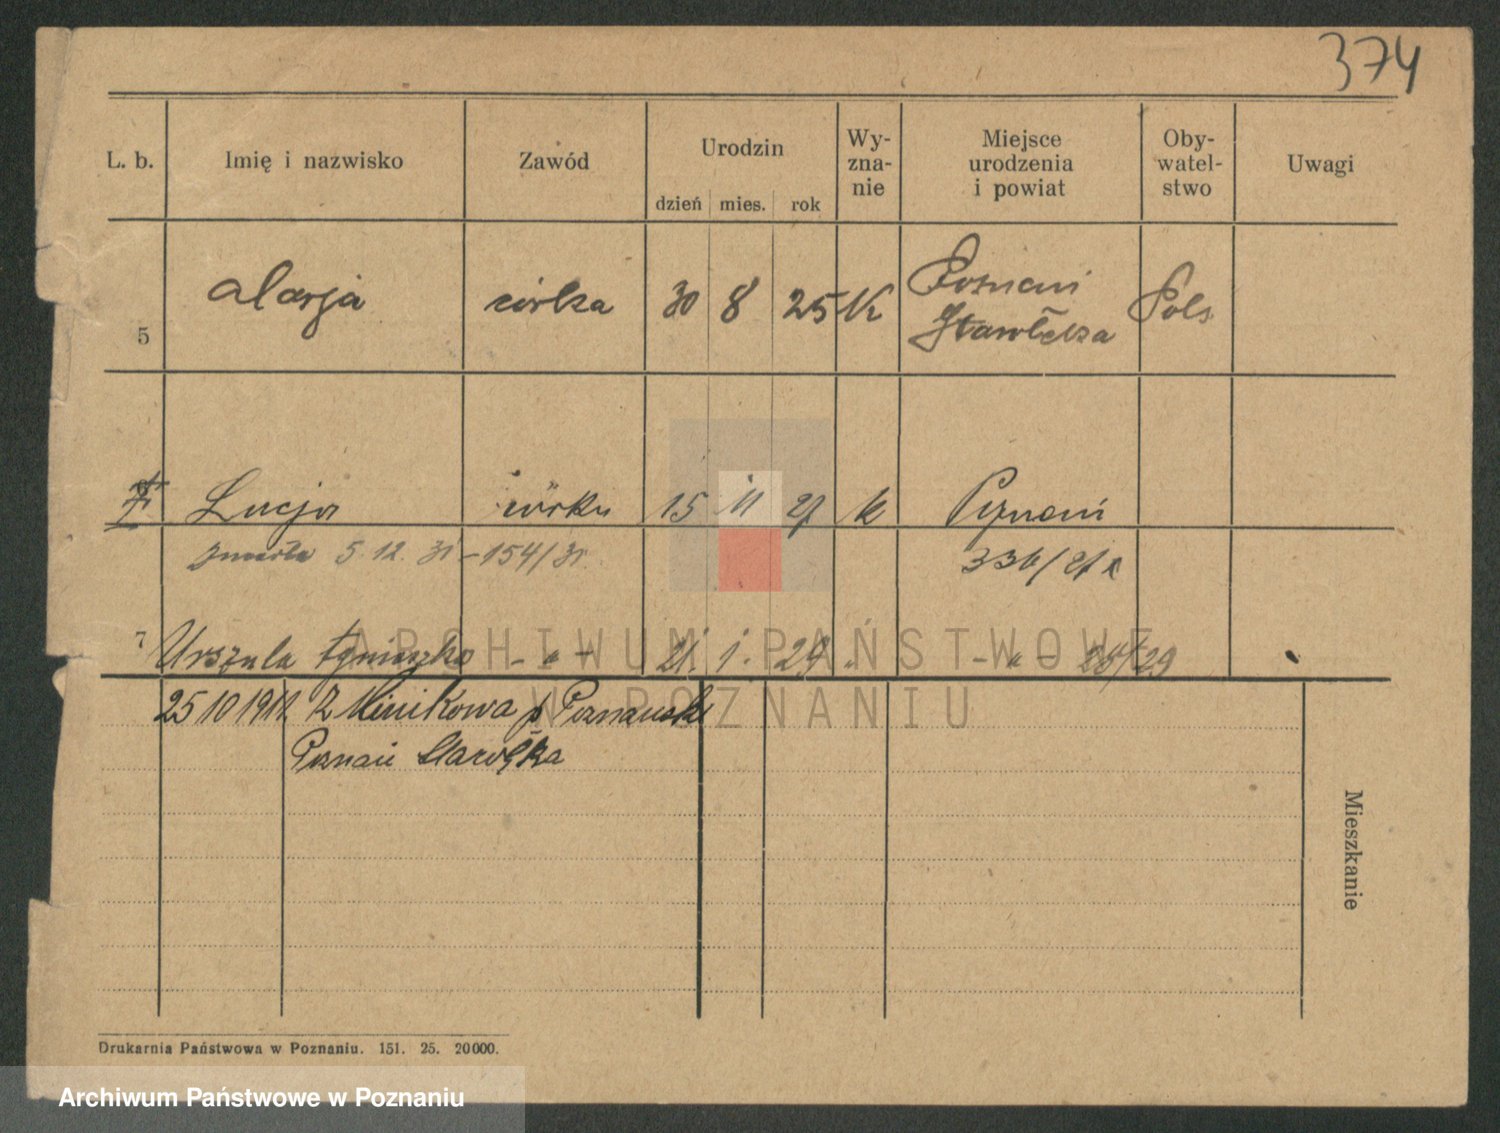 374
L. b. Imię i nazwisko Zawód Urodzin Wy- Miejsce Oby-
zna- urodzenia watel- Uwagi
dzień mies. rok nie i powiat stwo
5 Marja córka 30 8 25 K Poznań Pols
Starołęka
Łucja córka 15 11 27 k Poznań
zmarła 5.12.31 - 154/31. 336/27
7 Urszula Agnieszka - " - 21. 1. 29. - " - 29
25 10 1912 Z Minikowa p Poznański
Poznań Starołęka
Mieszkanie
Drukarnia Państwowa w Poznaniu. 151. 25. 20000.
ARCHIWUM PAŃSTWOWE
W POZNANIU
Archiwum Państwowe w Poznaniu